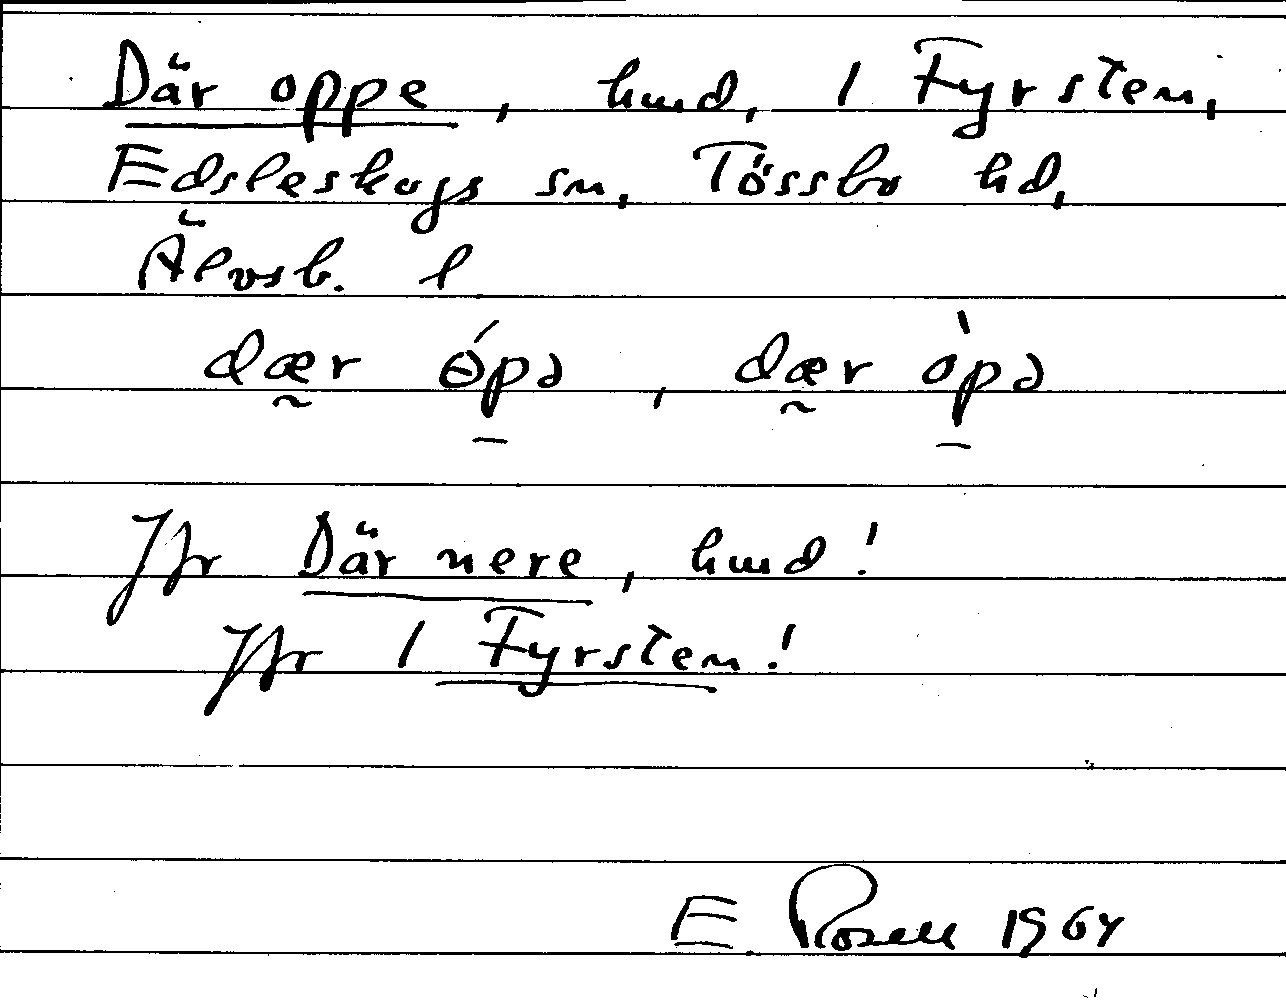 Där oppe, hmd, 1 Fyrsten,
Edsleskogs sn, Tössbo hd,
Älvsb. l
dær ɵ́pə, dær òpə
Jfr Där nere, hmd!
Jfr 1 Fyrsten!
E. Rosell 1964